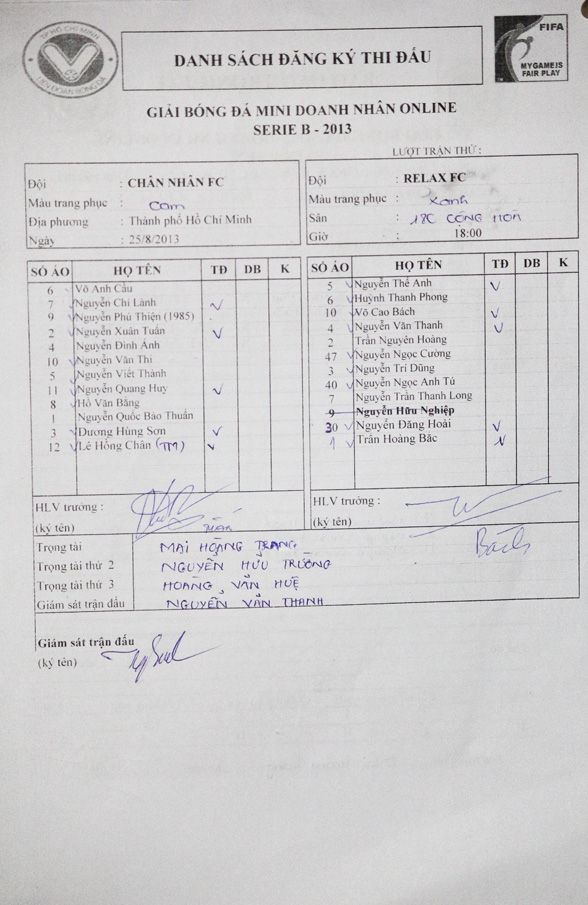 TP HỒ CHÍ MINH
LIÊN ĐOÀN BÓNG ĐÁ
DANH SÁCH ĐĂNG KÝ THI ĐẤU
FIFA
MY GAME IS
FAIR PLAY
GIẢI BÓNG ĐÁ MINI DOANH NHÂN ONLINE
SERIE B - 2013
LƯỢT TRẬN THỨ :
Đội : CHÂN NHÂN FC
Màu trang phục : Cam
Địa phương : Thành phố Hồ Chí Minh
Ngày : 25/8/2013
Đội : RELAX FC
Màu trang phục : Xanh
Sân : 18C CỘNG HÒA
Giờ : 18:00
SỐ ÁO HỌ TÊN TĐ DB K
6 Võ Anh Cầu
7 Nguyễn Chí Lành V
9 Nguyễn Phú Thiện (1985)
2 Nguyễn Xuân Tuấn V
4 Nguyễn Đình Ánh
10 Nguyễn Văn Thi
5 Nguyễn Viết Thành
11 Nguyễn Quang Huy V
8 Hồ Văn Băng
1 Nguyễn Quốc Bảo Thuấn
3 Dương Hùng Sơn V
12 Lê Hồng Chân (TM) V
SỐ ÁO HỌ TÊN TĐ DB K
5 Nguyễn Thế Anh V
6 Huỳnh Thanh Phong
10 Võ Cao Bách V
4 Nguyễn Văn Thanh V
2 Trần Nguyên Hoàng
47 Nguyễn Ngọc Cường
3 Nguyễn Trí Dũng
40 Nguyễn Ngọc Anh Tú
7 Nguyễn Trần Thanh Long
9 Nguyễn Hữu Nghiệp
30 Nguyễn Đăng Hoài V
1 Trần Hoàng Bắc V
HLV trưởng :
(ký tên)
HLV trưởng :
(ký tên)
Bách
Trọng tài MAI HOÀNG TRANG
Trọng tài thứ 2 NGUYỄN HỮU TRƯỜNG
Trọng tài thứ 3 HOÀNG VĂN HUỆ
Giám sát trận đấu NGUYỄN VĂN THANH
Giám sát trận đấu
(ký tên)